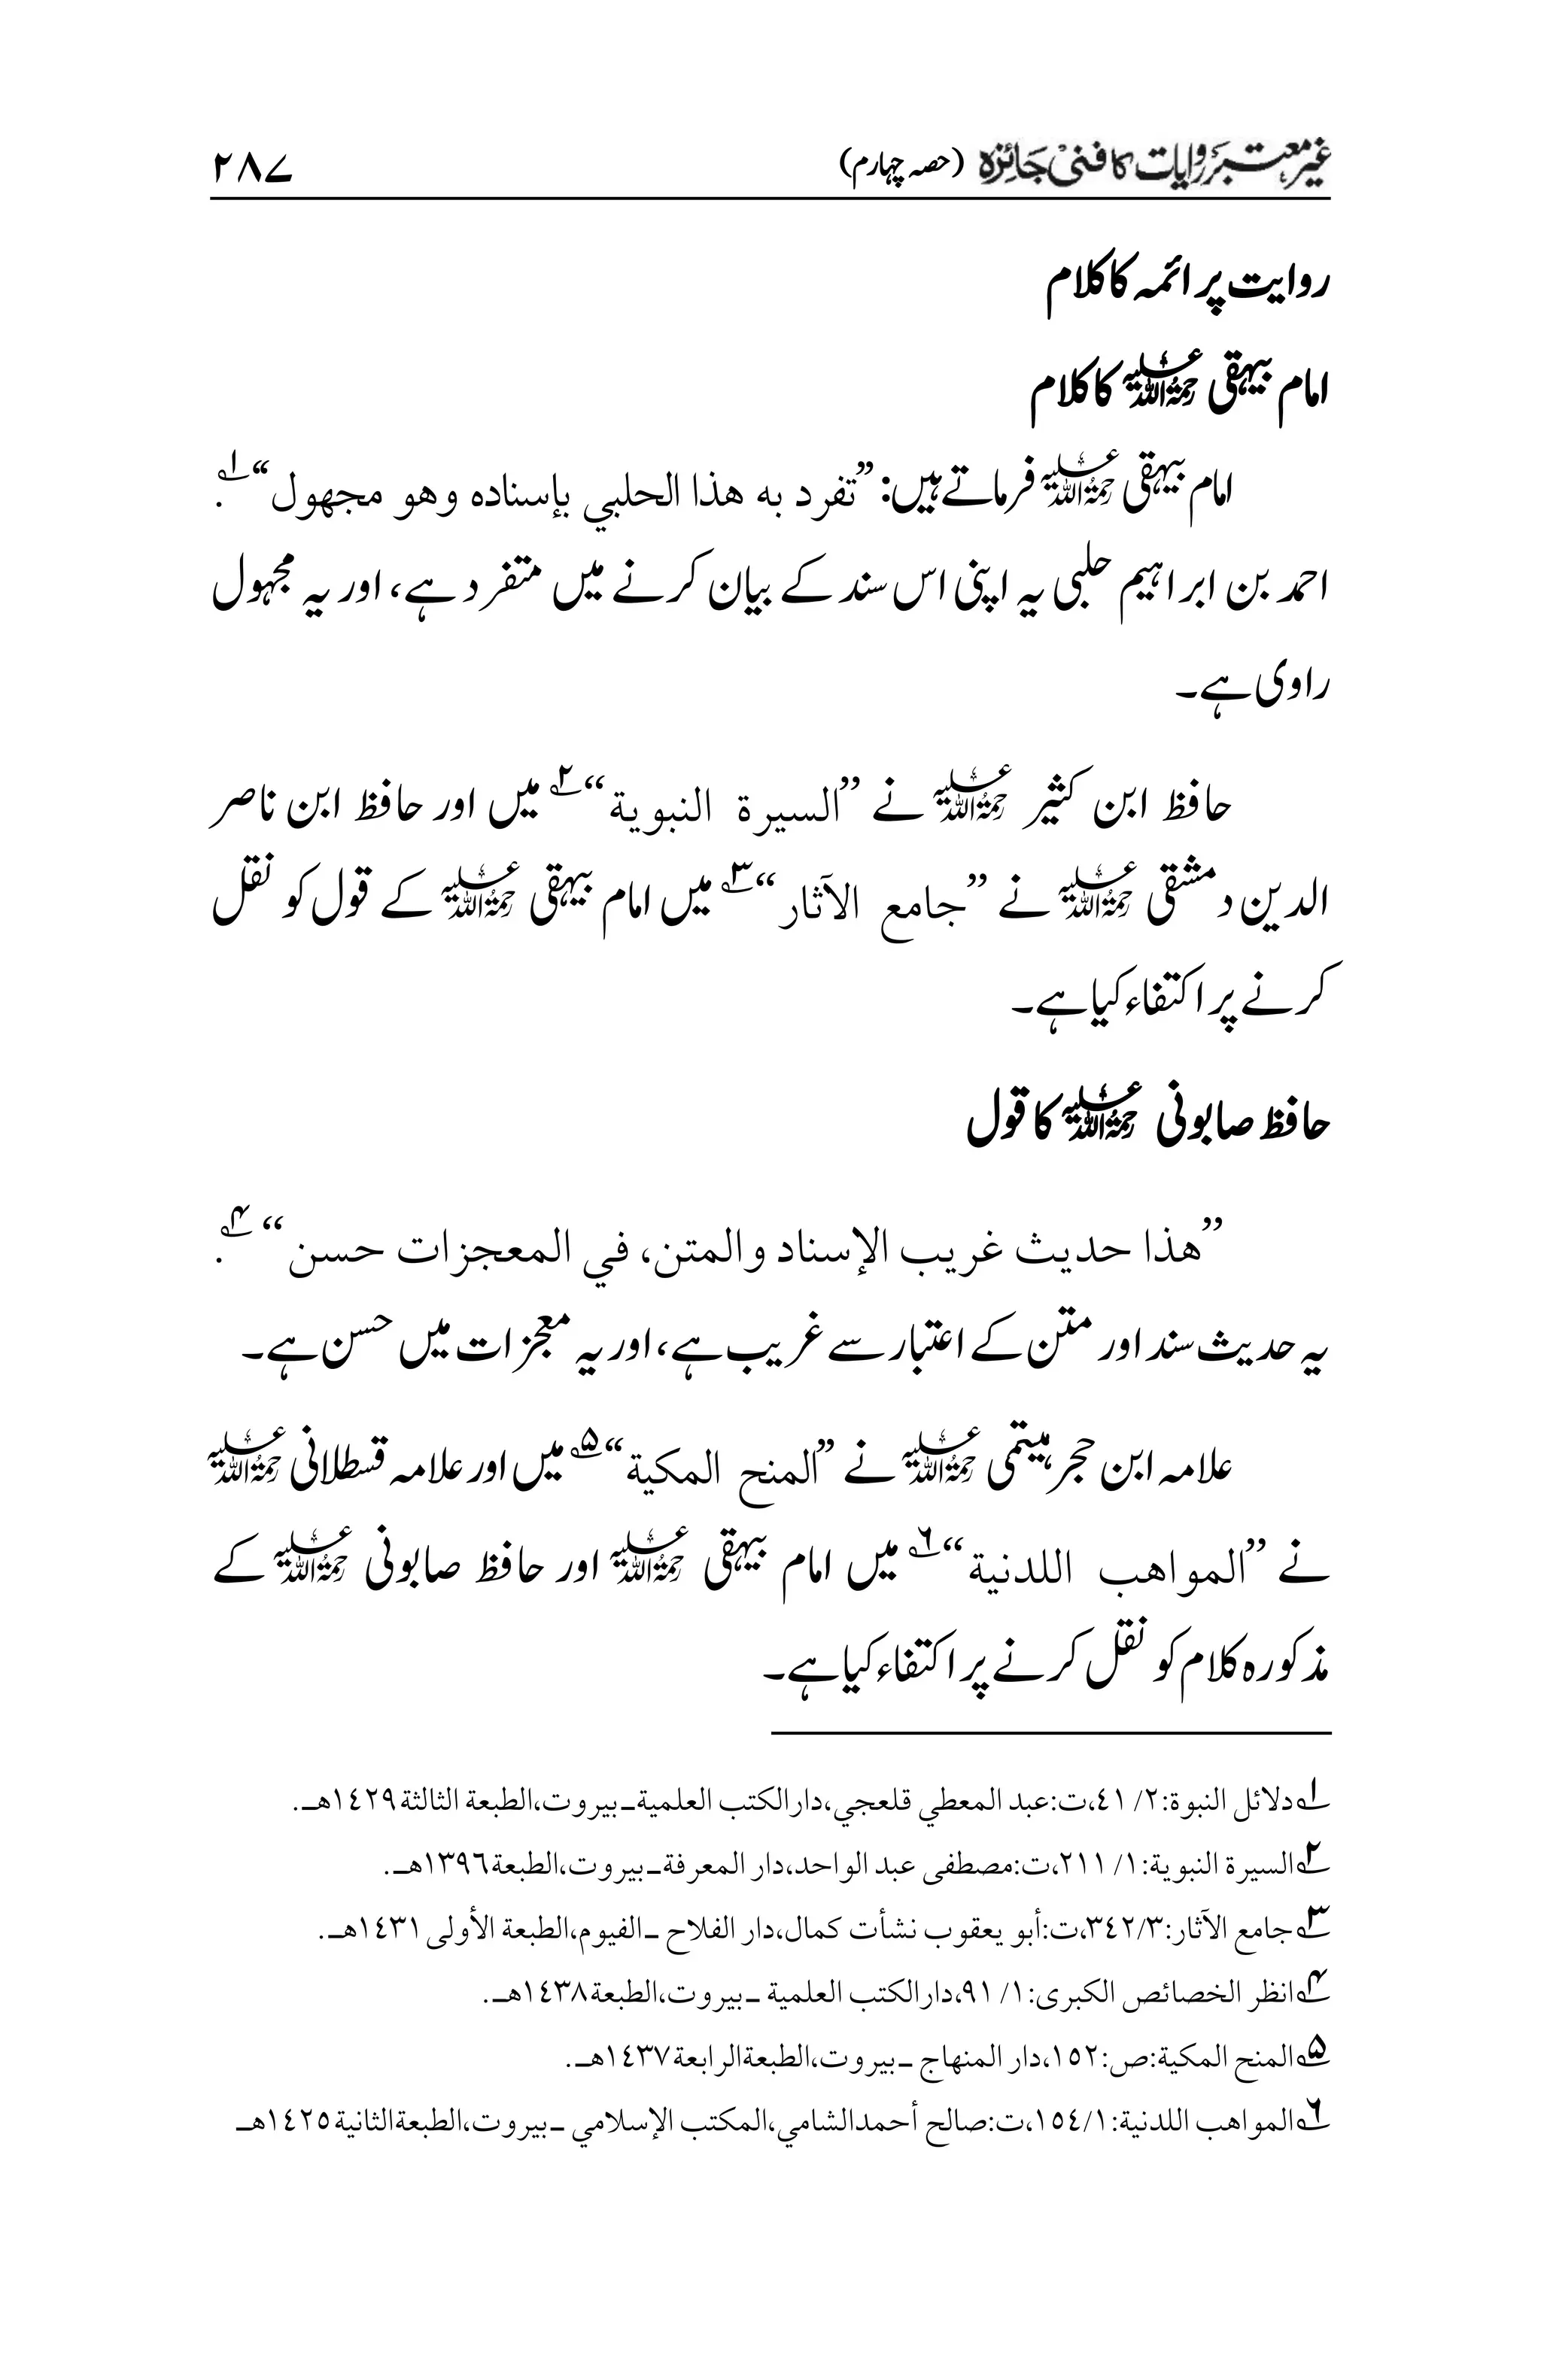 غیر معتبر روایات کا فنی جائزہ (حصہ چہارم) ۲۸۷
روایت پر ائمہ کا کلام
امام بیہقی رحمۃ اللہ علیہ کا کلام
امام بیہقی رحمۃ اللہ علیہ فرماتے ہیں: ”تفرد به هذا الحلبي بإسناده وهو مجهول“ ۱؎.
احمد بن ابراہیم حلبی یہ اپنی اس سند کے بیان کرنے میں متفرد ہے، اور یہ مجہول
راوی ہے۔
حافظ ابن کثیر رحمۃ اللہ علیہ نے ”السيرة النبوية“ ۲؎ میں اور حافظ ابن ناصر
الدین دمشقی رحمۃ اللہ علیہ نے ”جامع الآثار“ ۳؎ میں امام بیہقی رحمۃ اللہ علیہ کے قول کو نقل
کرنے پر اکتفاء کیا ہے۔
حافظ صابونی رحمۃ اللہ علیہ کا قول
”هذا حديث غريب الإسناد والمتن، في المعجزات حسن“ ۴؎.
یہ حدیث سند اور متن کے اعتبار سے غریب ہے، اور یہ معجزات میں حسن ہے۔
علامہ ابن حجر ہیتمی رحمۃ اللہ علیہ نے ”المنح المكية“ ۵؎ میں اور علامہ قسطلانی رحمۃ اللہ علیہ
نے ”المواهب اللدنية“ ۶؎ میں امام بیہقی رحمۃ اللہ علیہ اور حافظ صابونی رحمۃ اللہ علیہ کے
مذکورہ کلام کو نقل کرنے پر اکتفاء کیا ہے۔
۱؎ دلائل النبوة:٢/ ٤١،ت:عبد المعطي قلعجي،دارالكتب العلمية ـ بيروت،الطبعة الثالثة ١٤٢٩هـ.
۲؎ السيرة النبوية:١/ ٢١١،ت:مصطفى عبد الواحد،دار المعرفة ـ بيروت،الطبعة ١٣٩٦هـ.
۳؎ جامع الآثار:٣٤٢/٣،ت:أبو يعقوب نشأت كمال،دار الفلاح ـ الفيوم،الطبعة الأولى ١٤٣١هـ.
۴؎ انظر الخصائص الكبرى:١/ ٩١،دارالكتب العلمية ـ بيروت،الطبعة ١٤٣٨هـ.
۵؎ المنح المكية:ص:١٥٢،دار المنهاج ـ بيروت،الطبعةالرابعة ١٤٣٧هـ.
۶؎ المواهب اللدنية:١٥٤/١،ت:صالح أحمدالشامي،المكتب الإسلامي ـ بيروت،الطبعةالثانية ١٤٢٥هـ